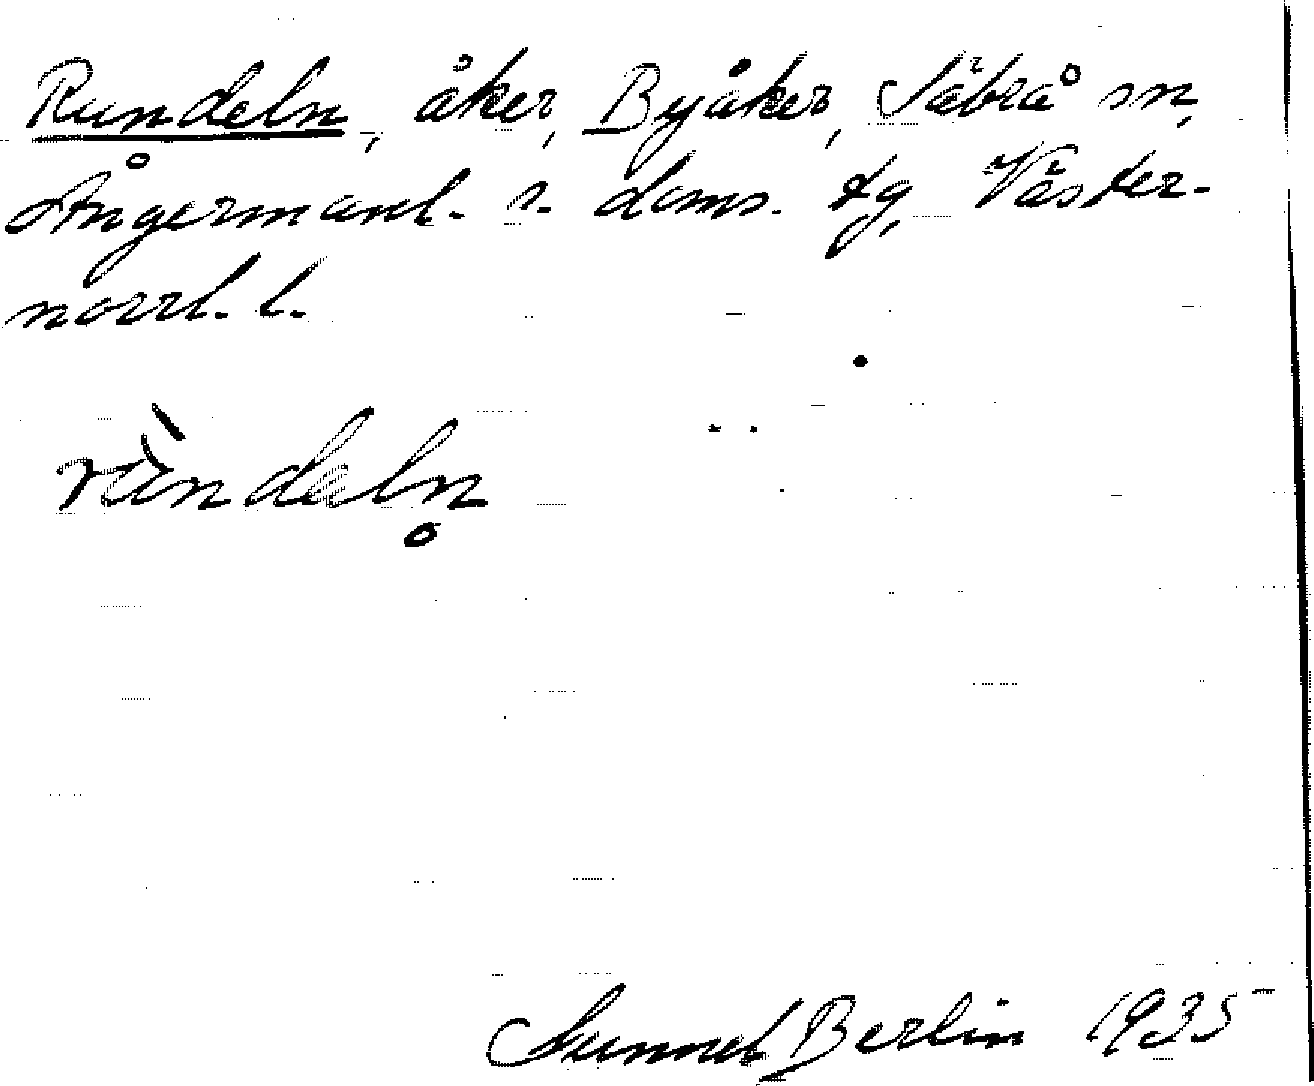 Rundeln, åker, Byåker, Säbrå sn,
Ångermanl. s. doms. tg, Väster-
norrl. l.
rùndeln̥
Gunnel Berlin 1935